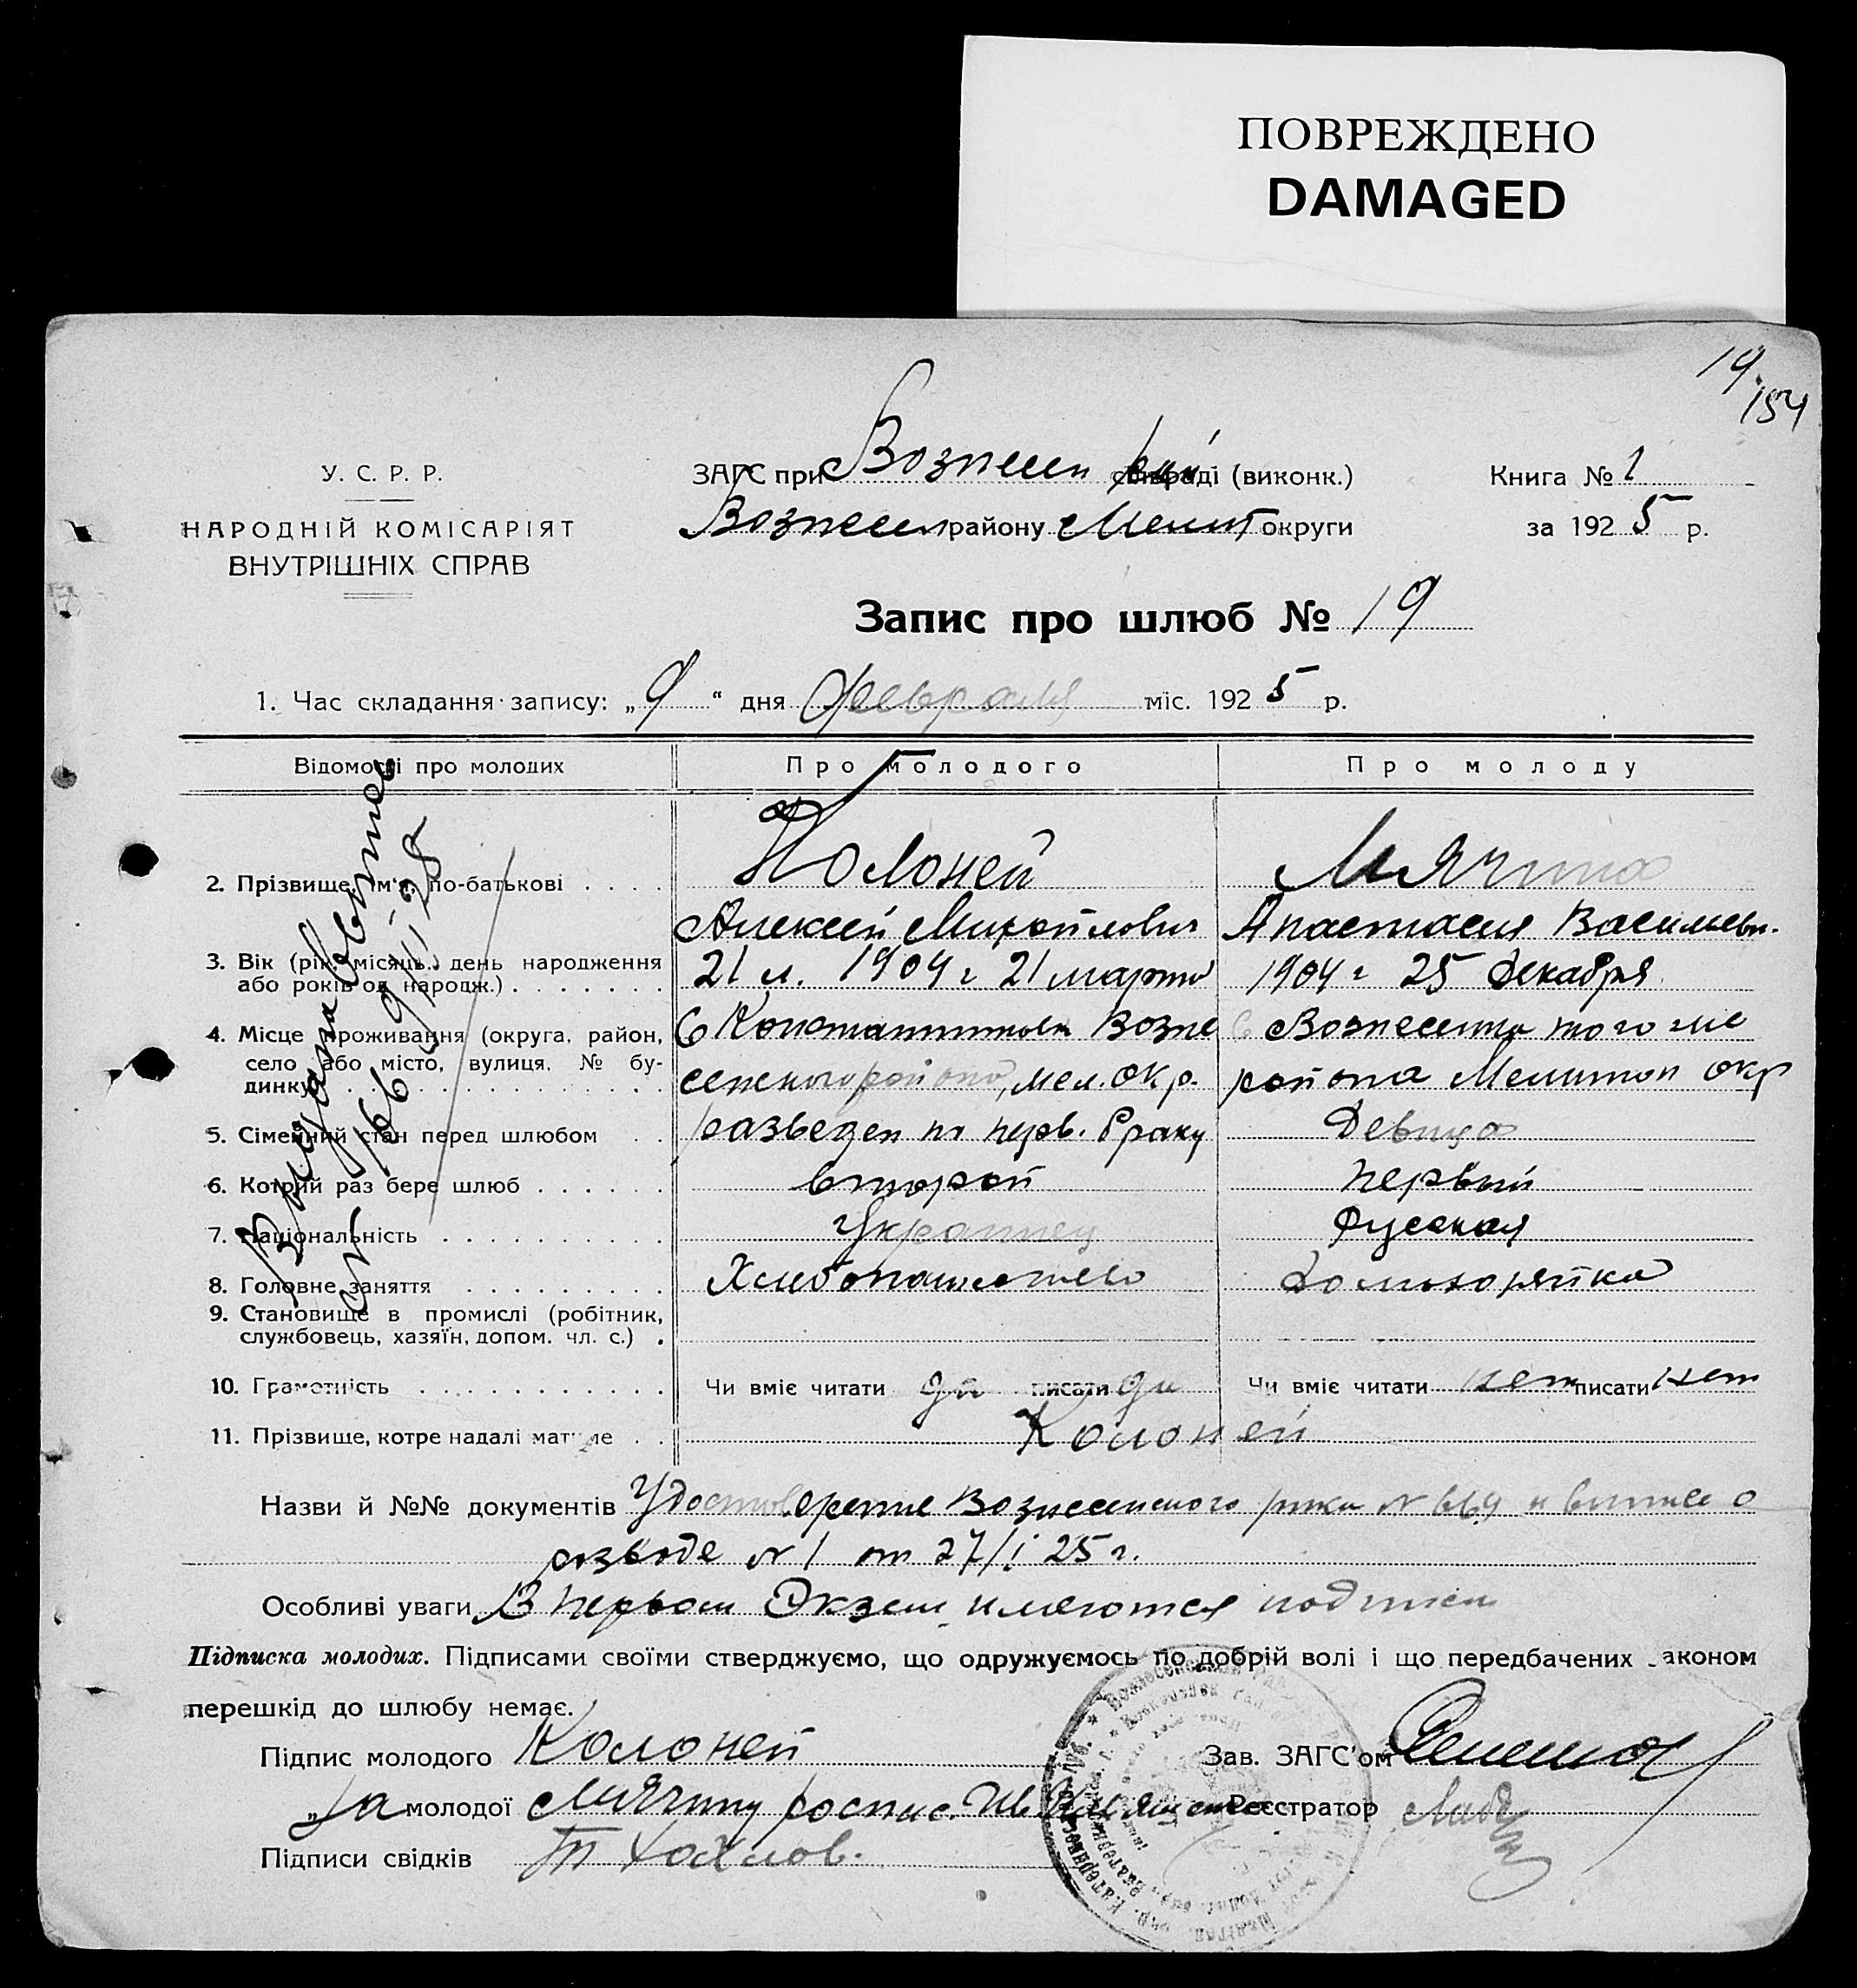 ПОВРЕЖДЕНО
DAMAGED
19
154
У. С. Р. Р.
НАРОДНІЙ КОМІСАРІЯТ
ВНУТРІШНІХ СПРАВ
ЗАГС при Вознесен (виконк.)
Вознесен району Мелит округи
Книга № 1
за 1925 р.
Запис про шлюб № 19
1. Час складання запису: „9“ дня февраля міс. 1925 р.
Відомости про молодих
Про молодого
Про молоду
2. Прізвище, ім'я, по-батькові . . . .
Колоней
Алексей Михайлович
Мячина
Анастасия Васильевн.
3. Вік (рік, місяць, день народження
або років од народж.) . . . . . . .
21 л. 1904 г 21 марта
1904 г 25 декабря
4. Місце проживання (округа, район,
село або місто, вулиця, № бу-
динку) . . . . . . . . . .
С Константиновк Возне
сенского района, мел. окр.
С Вознесенка того же
района Мелитоп окр
5. Сімейний стан перед шлюбом . .
разведен по перв. браку
Девица
6. Котрий раз бере шлюб . . . . . .
второй
первый
7. Національність . . . . . . . . . .
Украинец
Русская
8. Головне заняття . . . . . . . . .
Хлебопашество
Домохозяйка
9. Становище в промислі (робітник,
службовець, хазяїн, допом. чл. с.) .
10. Грамотність . . . . . . . . . . .
Чи вміє читати да писати да
Чи вміє читати нет писати нет
11. Прізвище, котре надалі матиме . .
Колоней
Выдана
от 28
Назви й №№ документів Удостоверение Вознесенского рика № 669 и выписка о
разводе № 1 от 27/I 25 г.
Особливі уваги В первом Экзем. имеются подписи
Підписка молодих. Підписами своїми стверджуємо, що одружуємось по добрій волі і що передбачених законом
перешкід до шлюбу немає.
Підпис молодого Колоней
Зав. ЗАГС'ом
„ За молодої Мячину распис.
Реєстратор
Підписи свідків Т Хохлов.